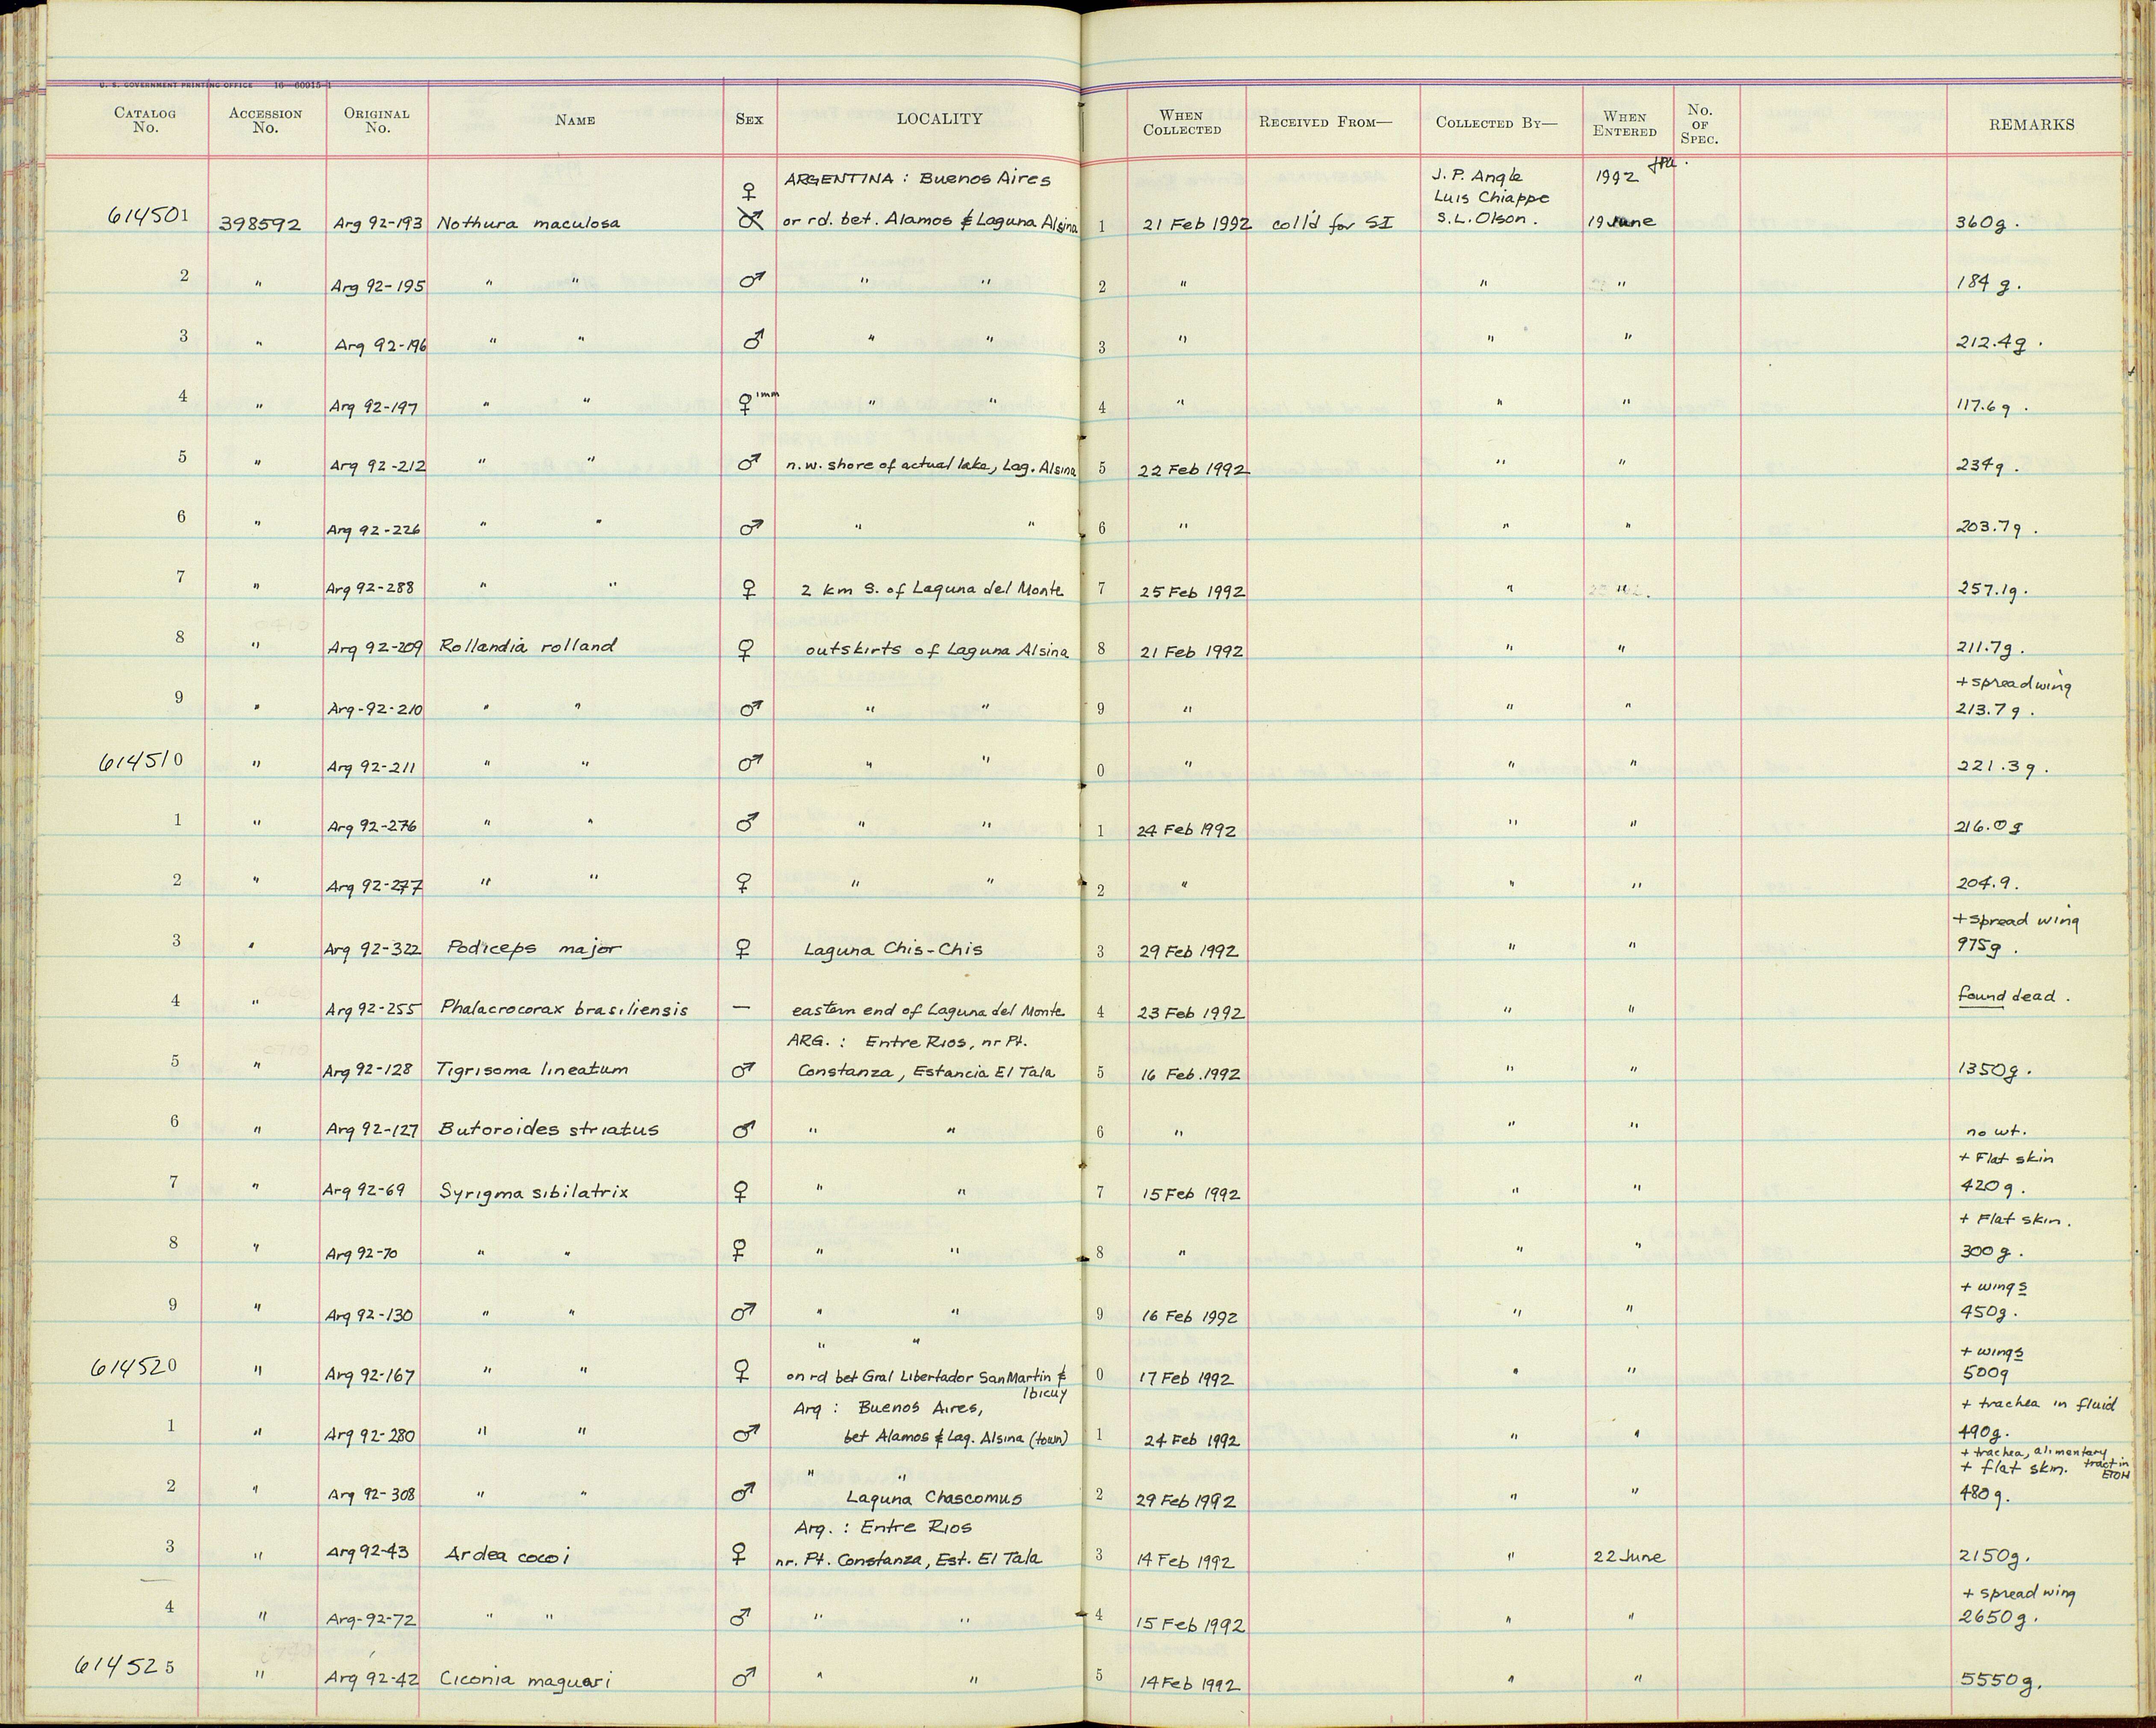 U. S. GOVERNMENT PRINTING OFFICE 16—60015-1
CATALOG No. ACCESSION No. ORIGINAL No. NAME SEX LOCALITY WHEN COLLECTED RECEIVED FROM— COLLECTED BY— WHEN ENTERED No. OF SPEC. REMARKS
♀ ARGENTINA : Buenos Aires J. P. Angle 1992
Luis Chiappe
614501 398592 Arg 92-193 Nothura maculosa ♂ or rd. bet. Alamos & Laguna Alsina 1 21 Feb 1992 coll'd for SI S.L. Olson. 19 June 360g.
2 " Arg 92-195 " " ♂ " " 2 " " " 184 g.
3 " Arg 92-196 " " ♂ " " 3 " " " 212.4g.
4 " Arg 92-197 " " ♀ imm " " 4 " " " 117.6g.
5 " Arg 92-212 " " ♂ n.w. shore of actual lake, Lag. Alsina 5 22 Feb 1992 " " 234g.
6 " Arg 92-226 " " ♂ " " 6 " " " 203.7g.
7 " Arg 92-288 " " ♀ 2 km S. of Laguna del Monte 7 25 Feb 1992 " " 257.1g.
8 " Arg 92-209 Rollandia rolland ♀ outskirts of Laguna Alsina 8 21 Feb 1992 " " 211.7g.
+ spread wing
9 " Arg-92-210 " " ♂ " " 9 " " " 213.7g.
614510 " Arg 92-211 " " ♂ " " 0 " " " 221.3g.
1 " Arg 92-276 " " ♂ " " 1 24 Feb 1992 " " 216.0g
2 " Arg 92-277 " " ♀ " " 2 " " " 204.9.
+ spread wing
3 " Arg 92-322 Podiceps major ♀ Laguna Chis-Chis 3 29 Feb 1992 " " 975g.
4 " Arg 92-255 Phalacrocorax brasiliensis — eastern end of Laguna del Monte 4 23 Feb 1992 " " found dead.
ARG. : Entre Rios, nr Pt.
5 " Arg 92-128 Tigrisoma lineatum ♂ Constanza, Estancia El Tala 5 16 Feb. 1992 " " 1350g.
6 " Arg 92-127 Butoroides striatus ♂ " " 6 " " " no wt.
+ Flat skin
7 " Arg 92-69 Syrigma sibilatrix ♀ " " 7 15 Feb 1992 " " 420g.
+ Flat skin.
8 " Arg 92-70 " " ♀ " " 8 " " " 300g.
+ wings
9 " Arg 92-130 " " ♂ " " 9 16 Feb 1992 " " 450g.
" " + wings
614520 " Arg 92-167 " " ♀ on rd bet Gral Libertador San Martin & Ibicuy 0 17 Feb 1992 " " 500g
Arg : Buenos Aires, + trachea in fluid
1 " Arg 92-280 " " ♂ bet Alamos & Lag. Alsina (town) 1 24 Feb 1992 " " 490g.
+ trachea, alimentary tract in ETOH
" " + flat skin.
2 " Arg 92-308 " " ♂ Laguna Chascomus 2 29 Feb 1992 " " 480g.
Arg. : Entre Rios
3 " Arg 92-43 Ardea cocoi ♀ nr. Pt. Constanza, Est. El Tala 3 14 Feb 1992 " 22 June 2150g.
+ spread wing
4 " Arg-92-72 " " ♂ " " 4 15 Feb 1992 " " 2650g.
614525 " Arg 92-42 Ciconia maguari ♂ " " 5 14 Feb 1992 " " 5550g.